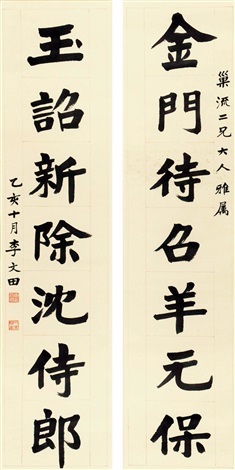 巢流二兄大人雅属
金門待召羊元保
玉詔新除沈侍郎
乙亥十月李文田